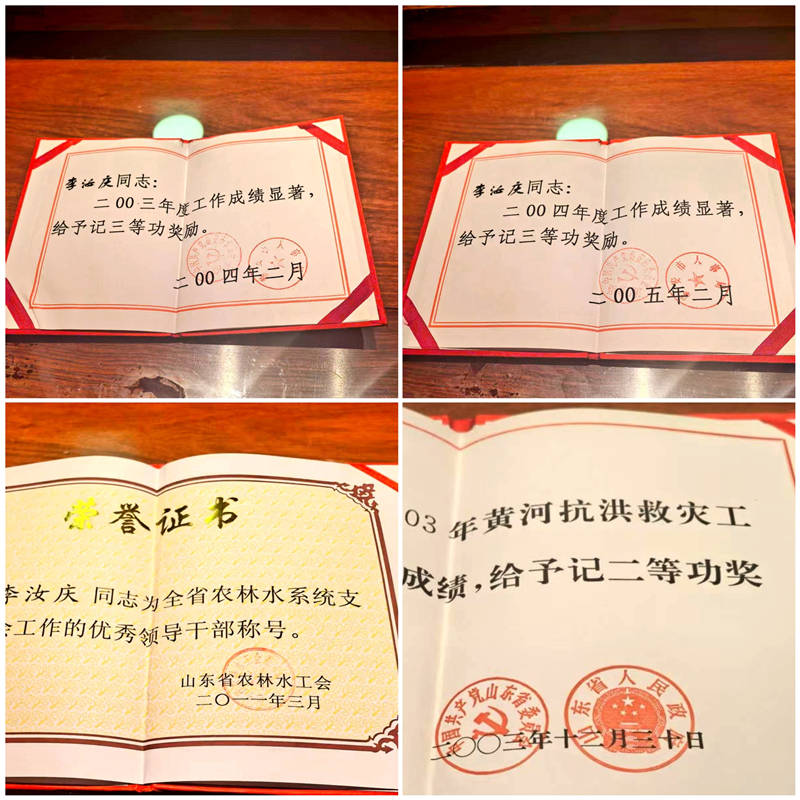 李汝庆同志：
二00三年度工作成绩显著，
给予记三等功奖励。
二00四年二月
李汝庆同志：
二00四年度工作成绩显著，
给予记三等功奖励。
市人事
二00五年二月
荣誉证书
李汝庆 同志为全省农林水系统支
会工作的优秀领导干部称号。
山东省农林水工会
二〇一一年三月
03年黄河抗洪救灾工
成绩，给予记二等功奖
中国共产党山东省委员会
山东省人民政府
二〇〇三年十二月三十日